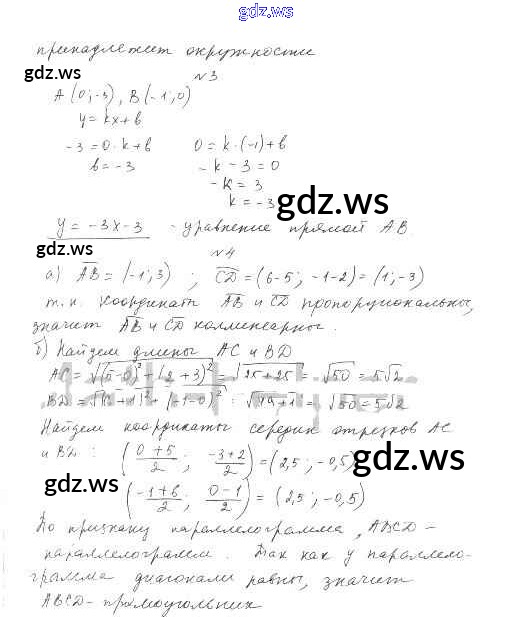 gdz.ws
принадлежит окружности
gdz.ws
N3
A (0; -3), B (-1; 0)
y = kx + b
-3 = 0·k + b 0 = k·(-1) + b
b = -3 -k - 3 = 0
-k = 3
k = -3
gdz.ws
y = -3x - 3 - уравнение прямой AB.
gdz.ws N4
а) AB = (-1; 3) ; CD = (6-5; -1-2) = (1; -3)
т.к. координаты AB и CD пропорциональны,
значит AB и CD коллинеарны.
б) Найдем длины AC и BD
AC = √(5-0)² + (2+3)² = √25+25 = √50 = 5√2
BD = √(6+1)² + (-1-0)² = √49+1 = √50 = 5√2
Найдем координаты середин отрезков AC
и BD : (0+5/2 ; -3+2/2) = (2,5; -0,5)
gdz.ws
(-1+6/2 ; 0-1/2) = (2,5; -0,5)
gdz.ws
По признаку параллелограмма, ABCD -
параллелограмм. Так как у параллело-
грамма диагонали равны, значит
ABCD - прямоугольник